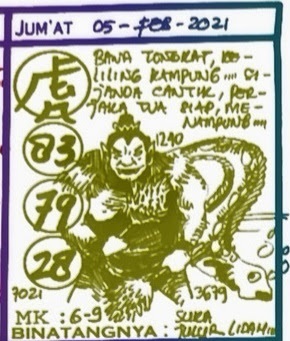 JUM'AT 05-FEB-2021
BAWA TONGKAT, KE-
LILING KAMPUNG.... SI
JANDA CANTIK, PER-
JAKA TUA SIAP, ME-
NAMPUNG....
虎
1240
83
79
28
7021
3679
MK : 6-9
SUKA
BINATANGNYA : JULUR LIDAH